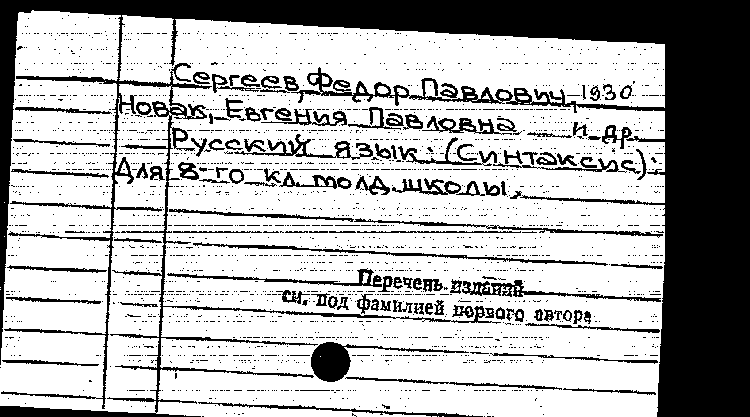 Сергеев, Федор Павлович, 1930
Новак, Евгения Павловна и др.
Русский язык: (Синтаксис):
Для 8-го кл. молд. школы.
Перечень изданий
см. под фамилией первого автора